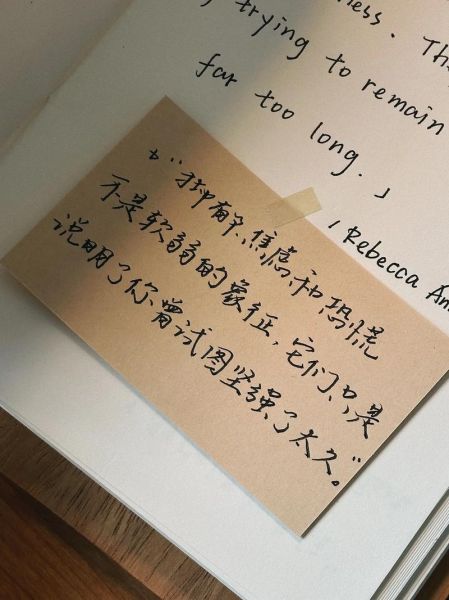 ness. Th
trying to remain
far too long.」
/ Rebecca An
“抑郁、焦虑和恐慌
不是软弱的象征，它们只是
说明了你曾试图坚强了太久”。